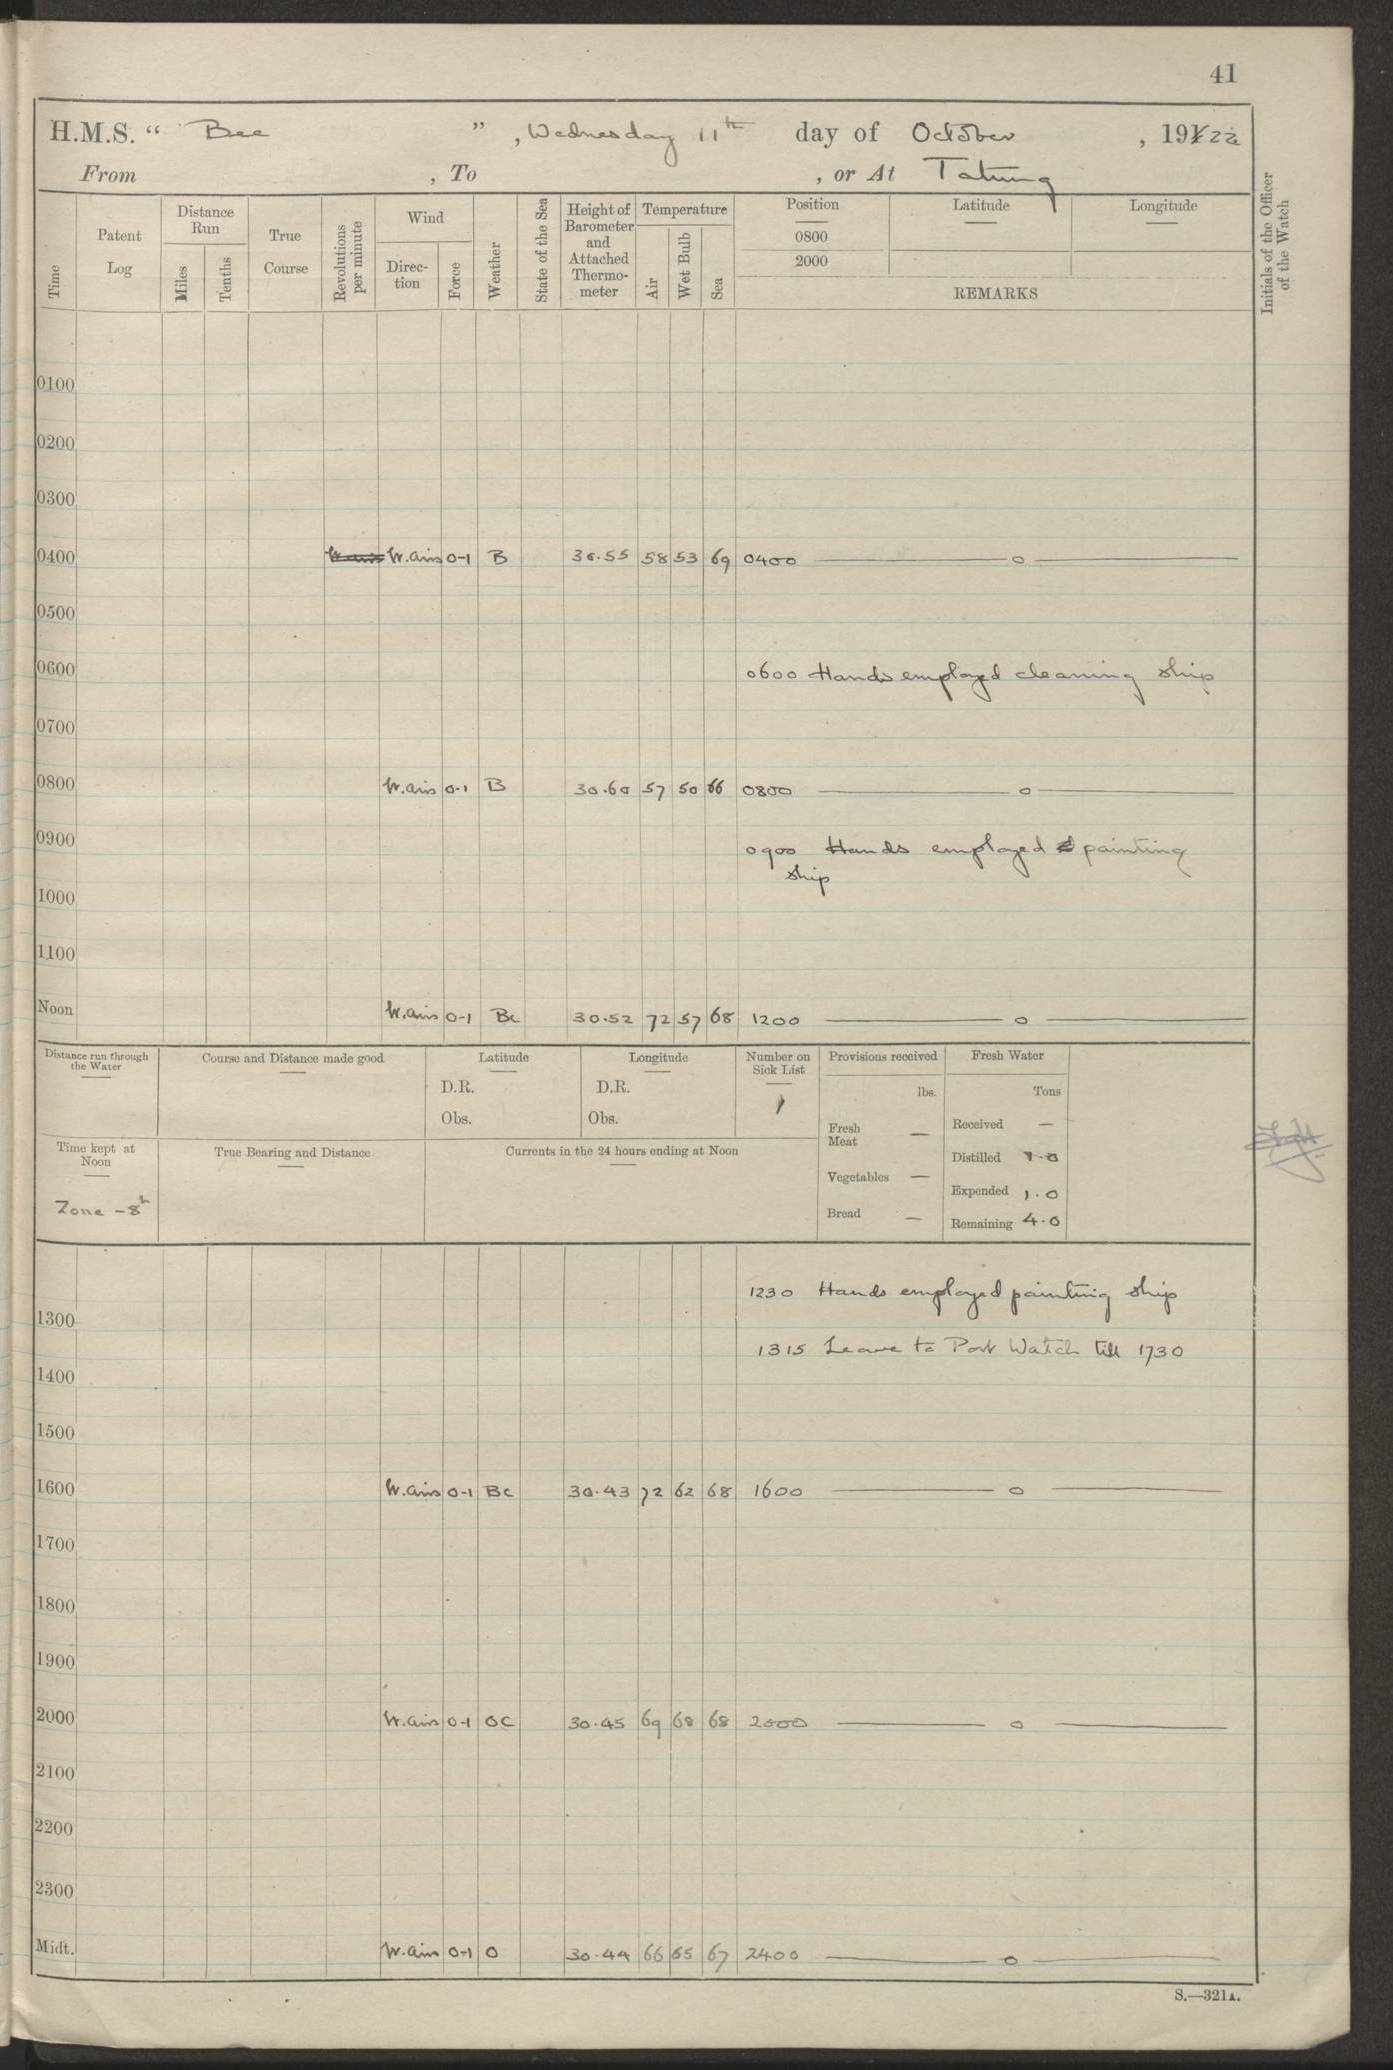 41
H.M.S. “ Bee ” , Wednesday 11th day of October , 1922
From , To , or At Tatung
Time
Patent Log
Distance Run
Miles
Tenths
True Course
Revolutions per minute
Wind
Direc-tion
Force
Weather
State of the Sea
Height of Barometer and Attached Thermo-meter
Temperature
Air
Wet Bulb
Sea
Position
0800
2000
Latitude
Longitude
REMARKS
Initials of the Officer of the Watch
0100
0200
0300
0400 W. airs 0-1 B 30.55 58 53 69 0400 —— o ——
0500
0600 0600 Hands employed cleaning ship
0700
0800 W. airs 0-1 B 30.60 57 50 66 0800 —— o ——
0900 0900 Hands employed painting
ship
1000
1100
Noon W. airs 0-1 Bc 30.52 72 57 68 1200 —— o ——
Distance run through the Water
Course and Distance made good
Latitude
D.R.
Obs.
Longitude
D.R.
Obs.
Number on Sick List
1
Provisions received
lbs.
Fresh Meat —
Vegetables —
Bread —
Fresh Water
Tons
Received —
Distilled 1.0
Expended 1.0
Remaining 4.0
Time kept at Noon
Zone -8h
True Bearing and Distance
Currents in the 24 hours ending at Noon
1230 Hands employed painting ship
1300
1315 Leave to Port Watch till 1730
1400
1500
1600 W. airs 0-1 Bc 30.43 72 62 68 1600 —— o ——
1700
1800
1900
2000 W. airs 0-1 OC 30.45 69 68 68 2000 —— o ——
2100
2200
2300
Midt. W. airs 0-1 O 30.44 66 65 67 2400 —— o ——
S.—321A.